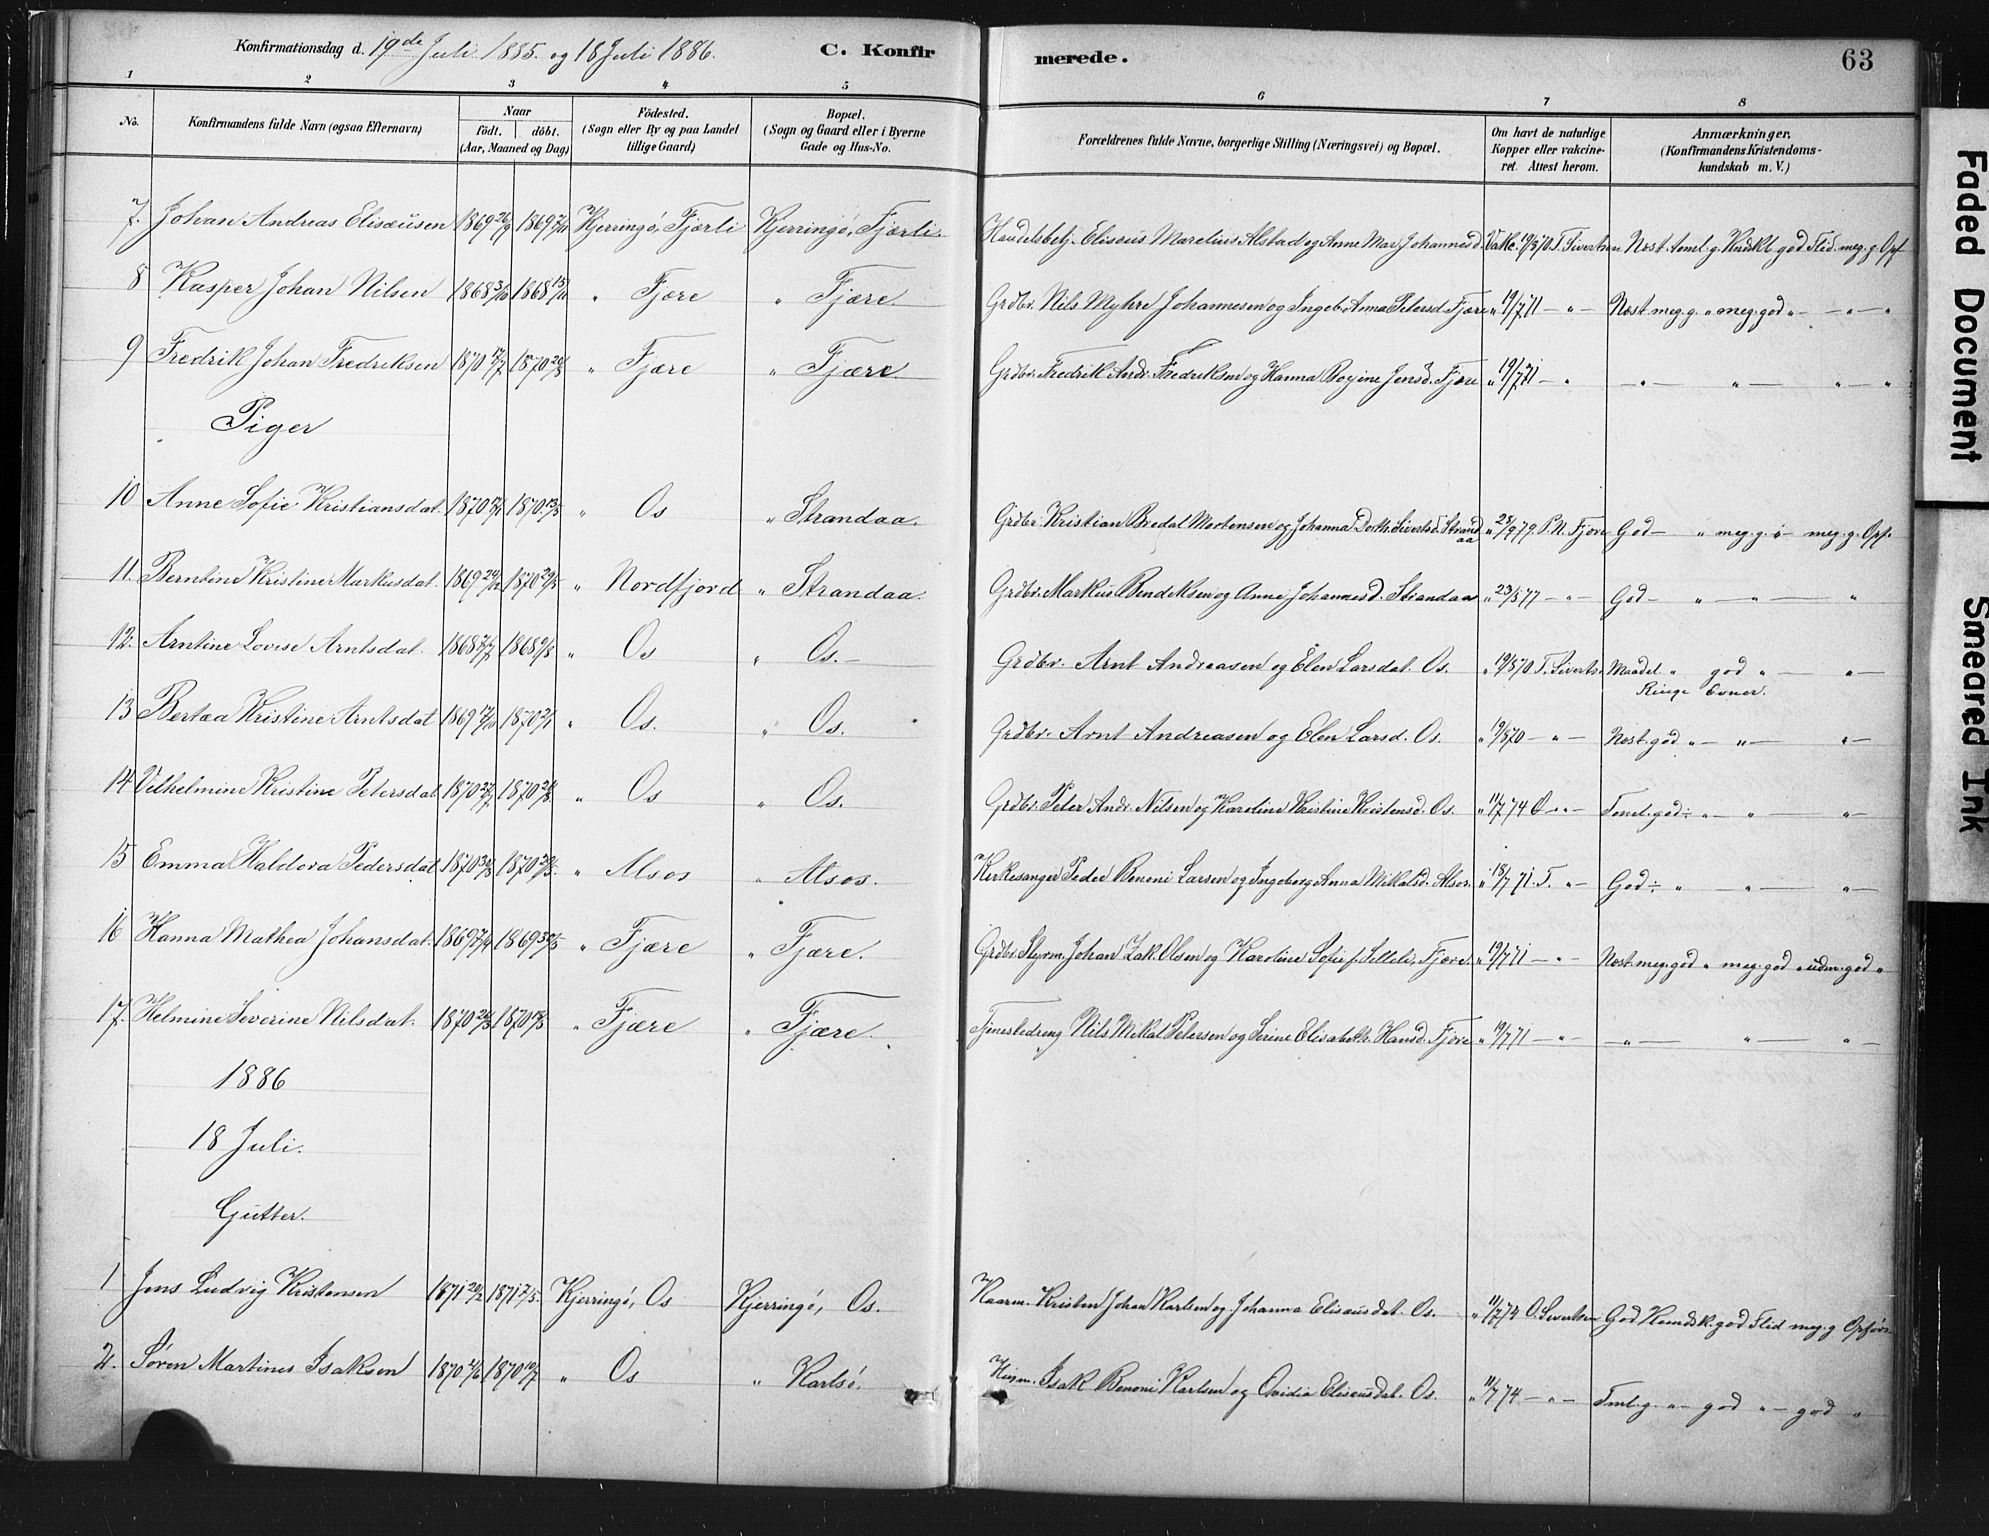 Konfirmationsdag d. 19de Juli 1885. og 18 Juli 1886. C. Konfirmerede. 63
1 2 3 4 5 6 7 8
No. Konfirmandens fulde Navn (ogsaa Efternavn) Naar födt. döbt. (Aar, Maaned og Dag) Födested. (Sogn eller By og paa Landet tillige Gaard) Bopæl. (Sogn og Gaard eller i Byerne Gade og Hus-No. Forældrenes fulde Navne, borgerlige Stilling (Næringsvei) og Bopæl. Om havt de naturlige Kopper eller vakcineret. Attest herom. Anmærkninger. (Konfirmandens Kristendomskundskab m.V.)
7. Johan Andreas Eliseusen 1869 26/9 1869 Kjerringö, Fjærli Kjerringö, Fjærli. Handelsbetj. Eliseus Marelius Alstad og Anne Mar. Johannesd. Vakc. 19/8 70 T. Sivertsen Næst. taml. g. Kndsk. god Flid. meg. g. Opf.
8 Kasper Johan Nilsen 1868 3/10 1868 15/11 " Fjære " Fjære. Grdbr. Nils Myhre Johannesen og Ingeb. Anna Petersd. Fjære " 19/7 71 — " — Næst meg. g. " meg. god " — " — "
9 Fredrik Johan Fredriksen 1870 1870 " Fjære " Fjære. Grdbr. Fredrik Andr. Fredriksen og Hanna Bergine Jensd. Fjære " 19/7 71 — " — " — " — " "
Piger
10 Anne Sofie Kristiansdat. 1870 1870 13/5 " Os " Strandaa. Grdbr. Kristian Bredal Mortensen og Johanna Dorth. Sivertsd. Strandaa " 25/9 79 P. N. Fjære God — " meg. g. " — meg. g. Opf.
11. Berntine Kristine Markusdat. 1869 24/12 1870 29/5 " Nordfjord " Strandaa. Grdbr. Markus Bendiksen og Anne Johannesd. Strandaa " 23/8 77 — " — God — " — " — "
12. Arntine Lovise Arntsdat. 1868 1868 9/8 " Os " Os. — Grdbr. Arnt Andreasen og Elen Larsdat. Os. " 19/8 70 T. Sivertsn Maadel. " god " — " —
Ringe Evner.
13 Bertaa Kristine Arntsdat 1869 17/10 1870 2/1 " Os. " Os. Grdbr. Arnt Andreasen og Elen Larsd. Os. " 19/8 70 — " — Næst. god " — " — " —
14 Vilhelmine Kristine Petersdat 1870 1870 " Os " Os. Grdbr. Peter Andr. Nilsen og Karoline Kristine Kristensd. Os. " 11/7 74 O — " — Taml. god " — " — " —
15 Emma Haldora Pedersdat 1870 1870 " Alsos " Alsos. Kirkesanger Peder Benoni Larsen og Ingeborg Anna Mikalsd. Alsos. " 18/7 71. T. " — God " — " — " —
16 Hanna Mathea Johansdat. 1869 7/4 1869 30/5 " Fjære " Fjære. Grdbr. Styrm. Johan Zak. Olsen og Karoline Sofie f. Selleli, Fjære. " 19/7 71 — " — Næst. meg. god " meg. god " udm. god "
17. Helmine Severine Nilsdat. 1870 1870 " Fjære " Fjære. Tjenestedreng Nils Mikal Petersen og Serine Elisabeth Hansd. Fjære " 19/7 71 — " — — " — " — " —
1886
18 Juli.
Gutter.
1 Jens Ludvig Kristensen 1871 20/2 1871 7/5. Kjerringö, Os Kjerringö, Os. Kaarm. Kristen Johan Karlsen og Johanna Eliseusdat. Os. " 11/7 74 O. Sivertsen God Kundsk. god Flid meg. g. Opförs.
2. Sören Martines Isaksen 1870 1870 10/7 " Os " Karlsö. Husm. Isak Benoni Karlsen og Ovidia Eliseusdat. Os. " 11/7 74. — " — Taml. g. " — god " — god "
Faded Document
Smeared Ink